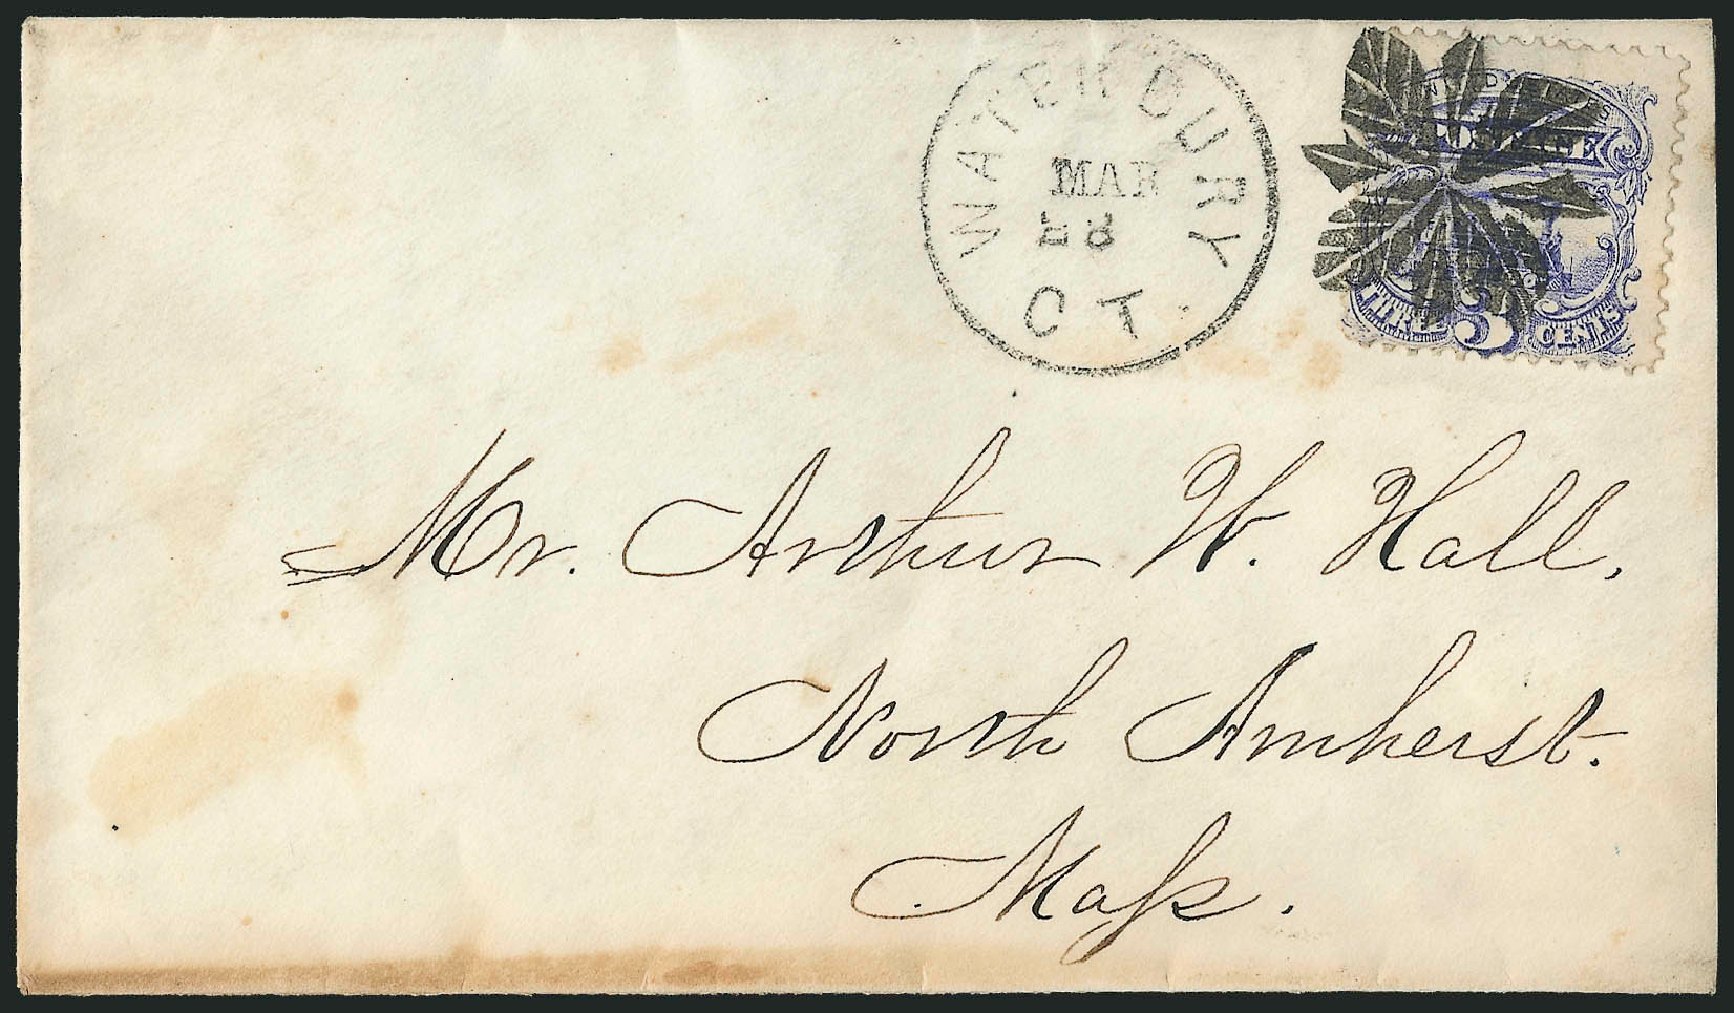 WATERBURY
MAR
CT.
UNITED STATES
POSTAGE
THREE 3 CENTS
Mr. Arthur W. Hall,
North Amherst.
Maſs.